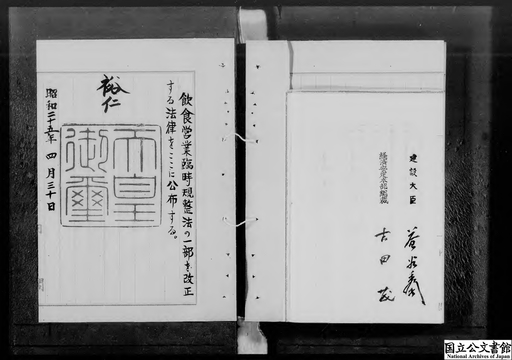 飲食営業臨時規整法の一部を改正
する法律をここに公布する。
裕仁
天皇
御璽
昭和二十五年四月三十日
建設大臣
益谷秀次
経済安定本部総裁
吉田茂
国立公文書館
National Archives of Japan